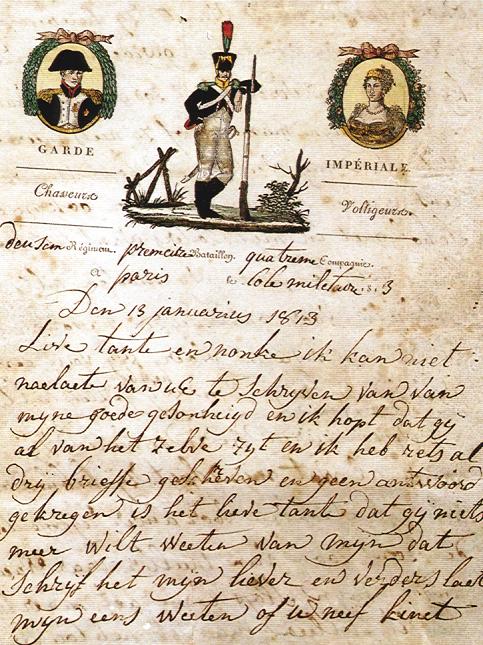 GARDE
IMPÉRIALE.
Chasseurs
Voltigeurs.
deusem Régiment. premeire Bataillon. quatreme Compagnie.
a paris le Cole militaire 3
Den 13 januarius 1813
Live tante en nonke ik kan niet
naelaete van uE te schryven van van
myne goede gesonheijd en ik hopt dat gy
al van het zelve zyt en ik heb rets al
dry brieffe geschreven en geen antwoord
gekregen is het lieve tante dat gy niets
meer wilt weeten van myn dat
schryf het myn liever en verders laet
myn eens weeten of u neef kinet